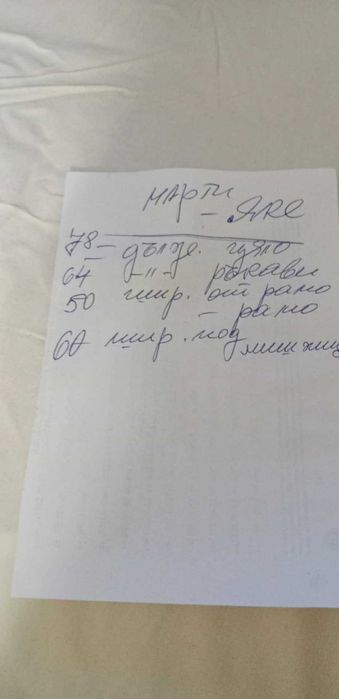 Марти
- Яке
78 - дълж. цяло
64 - " - ръкави
50 шир. от рамо
- рамо
60 шир. под
мишниц